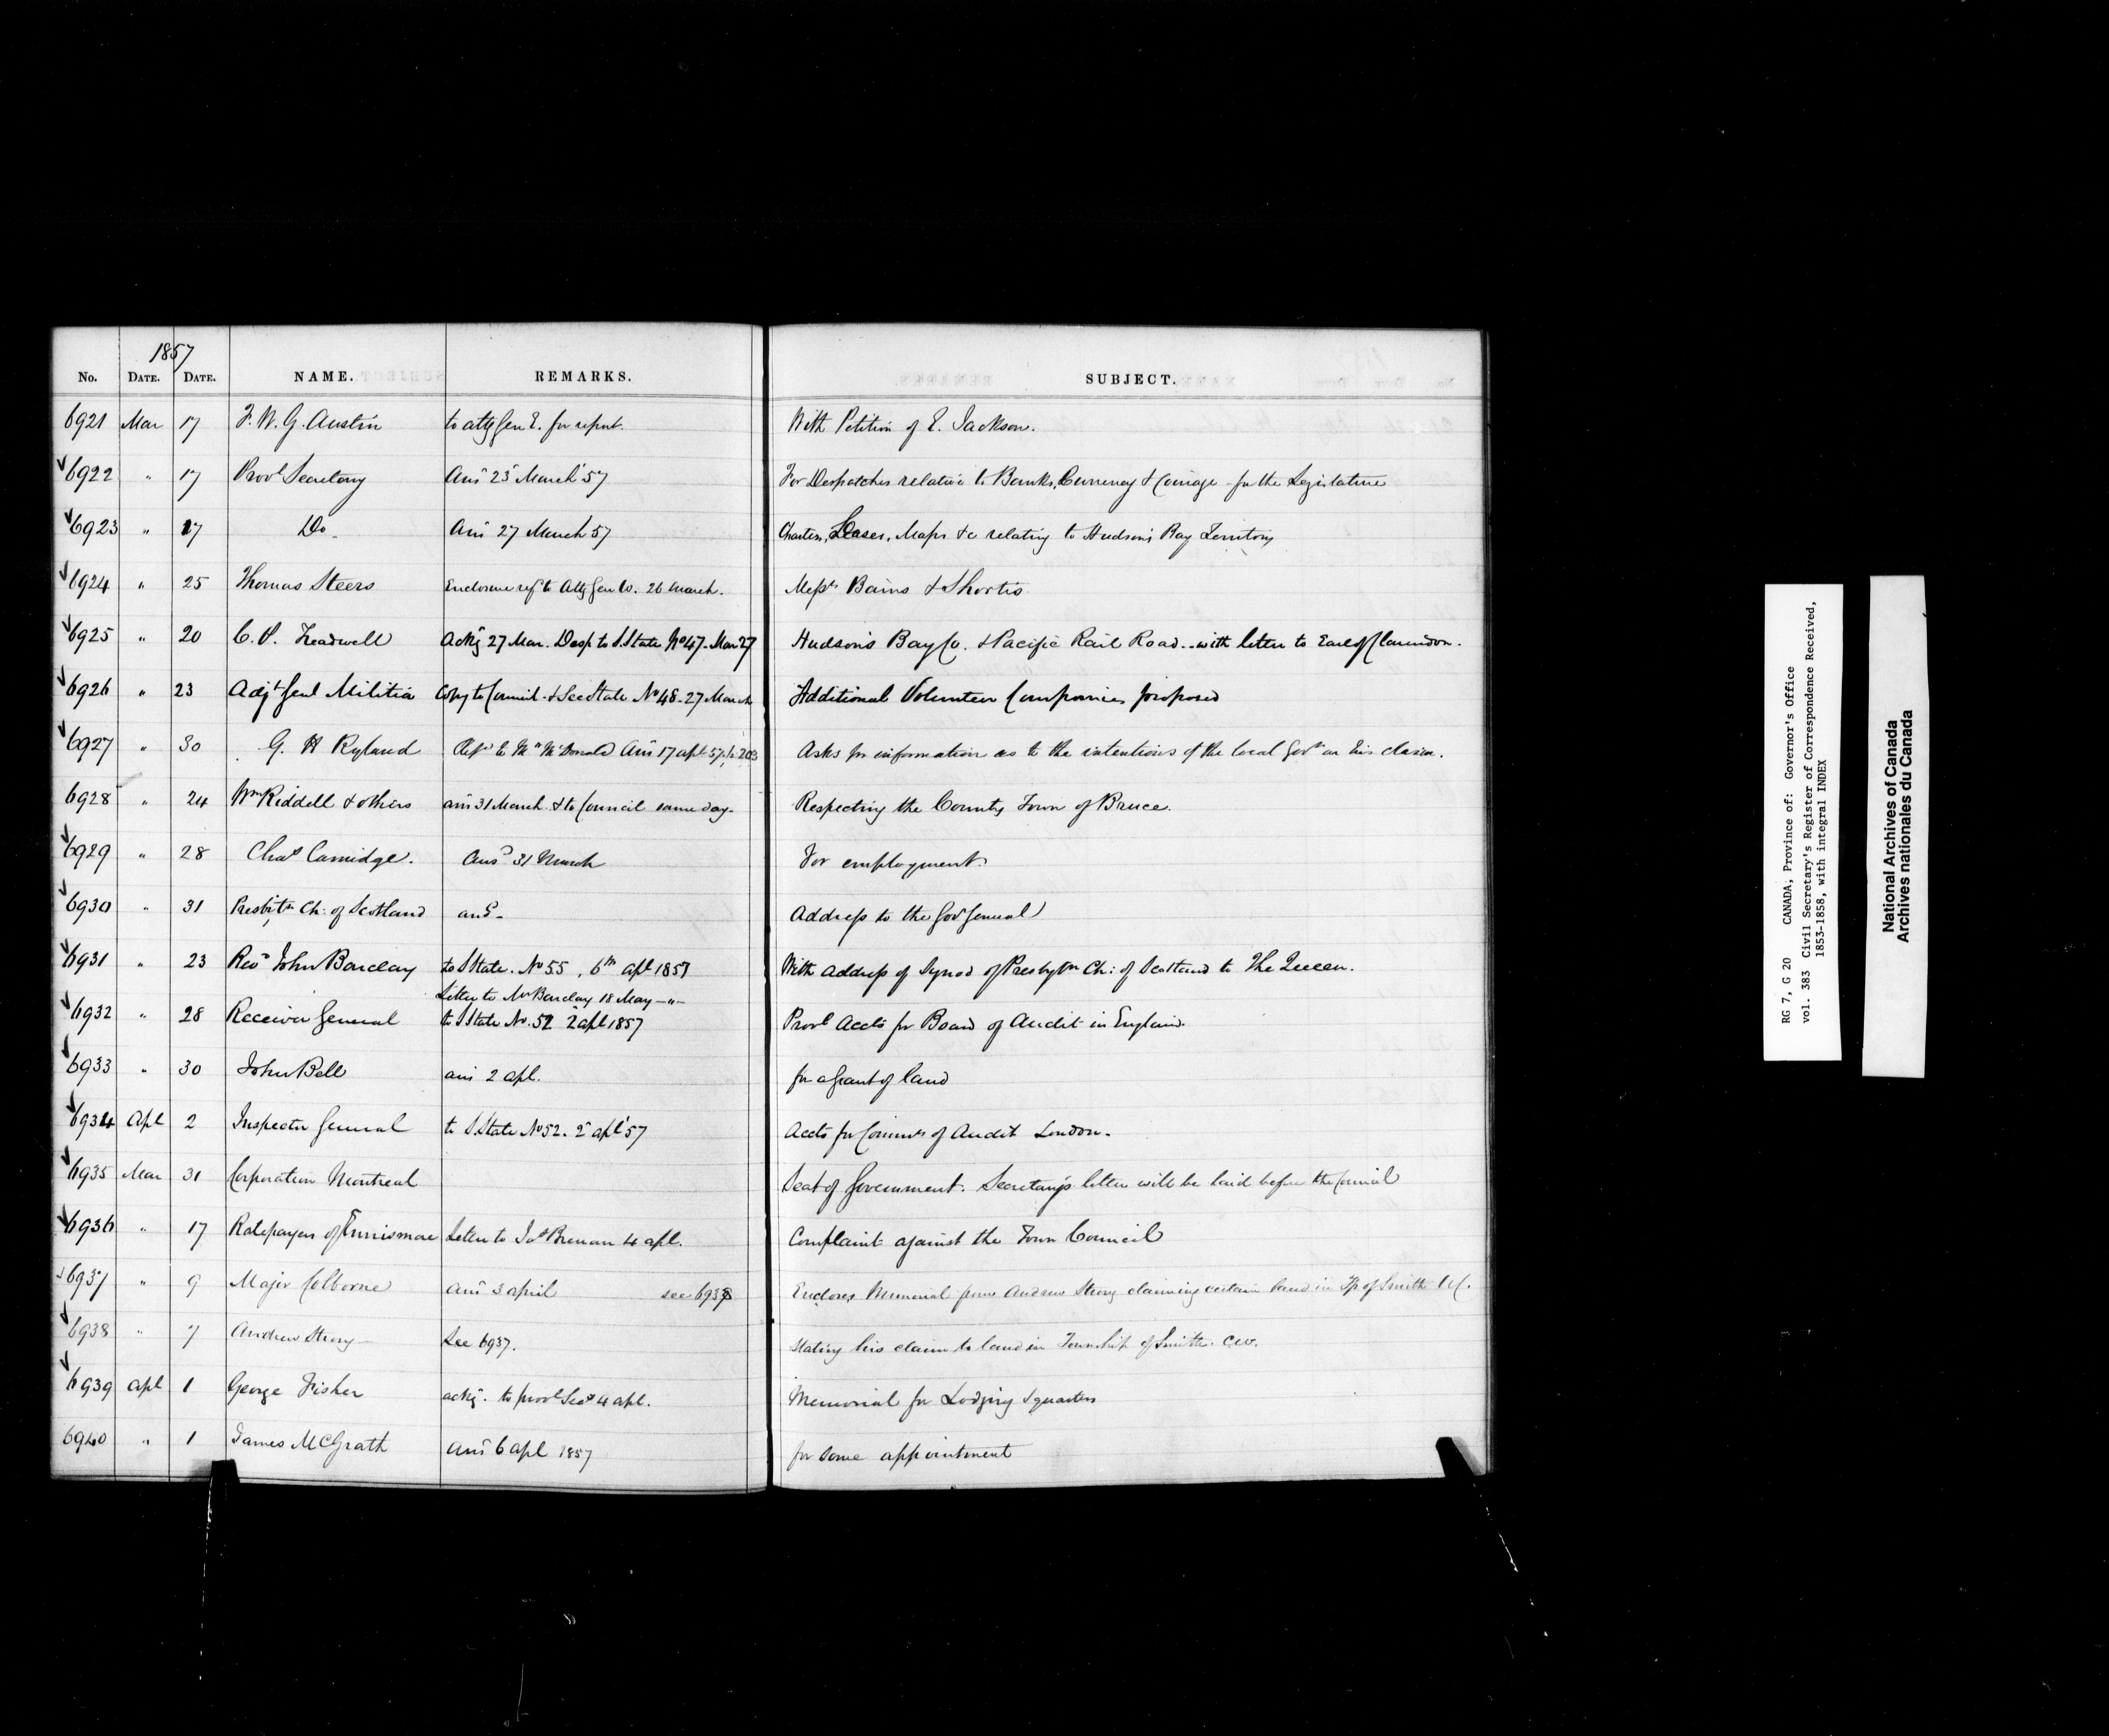 1857
No. DATE. DATE. NAME. REMARKS. SUBJECT.
6921 Mar 17 F. W. G. Austin to atty Gen E. for report. With Petition of E. Jackson.
6922 " 17 Provl Secretary Ansd 23d March '57 For Despatches relative to Banks, Currency & Coinage - for the Legislature
6923 " 27 Do. Ansd 27 March 57 Charters, Leases, Maps &c relating to Hudson's Bay Territory
6924 " 25 Thomas Steers Enclosure refd to Atty Gen W. 26 March. Messrs Bains & Shortis
6925 " 20 C. P. Treadwell Ackg 27 Mar. Desp to S. State No 47. Mar 27 Hudson's Bay Co. & Pacific Rail Road.. with letter to Earl of Clarendon.
6926 " 23 Adjt Genl Militia Copy to Council & Sec State No 48. 27 March Additional Volunteer Companies proposed
6927 " 30 G. H Ryland Refd to Mr McDonald Ansd 17 apl 57 p. 203 Asks for information as to the intentions of the local Govt on his claim.
6928 " 24 Wm Riddell & others ansd 31 March & to Council same day. Respecting the County Town of Bruce.
6929 " 28 Chas Camidge. Ansd 31 March For employment.
6930 " 31 Presbytn Ch: of Scotland ansd. Address to the Govr General
6931 " 23 Revd John Barclay to S State. No 55, 6th apl 1857 With address of Synod of Presbytn Ch: of Scotland to The Queen.
Letter to Mr Barclay 18 May — " —
6932 " 28 Receiver General to S State No. 52 2d apl 1857 Provl Accts for Board of Audit in England.
6933 " 30 John Bell ansd 2 apl. for a Grant of land
6934 Apl 2 Inspector General to S. State No 52. 2d apl '57 Accts for Commrs of Audit London.
6935 Mar 31 Corporation Montreal Seat of Government. Secretary's letter will be laid before the Council
6936 " 17 Ratepayers of Ennismore Letter to Jos Brenan 4 apl. Complaint against the Town Council
6937 " 9 Major Colborne Ansd 3 april see 6938 Encloses Memorial from Andrew Strong claiming certain land in Tp of Smith UC.
6938 " 7 Andrew Strong See 6937. Stating his claim to land in Township of Smith. CW.
6939 Apl 1 George Fisher ackg. to provl Secy 4 apl. Memorial for Lodging & quarters
6940 " 1 James McGrath Ansd 6 apl 1857 for some appointment
RG 7, G 20 CANADA, Province of: Governor's Office
vol. 383 Civil Secretary's Register of Correspondence Received,
1853-1858, with integral INDEX
National Archives of Canada
Archives nationales du Canada